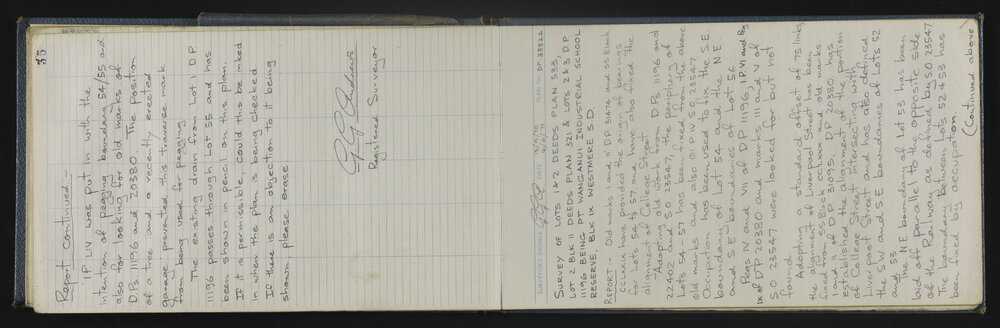 35
Report continued :-
IP LIV was put in with the
intention of pegging boundary 54/55 and
also for looking for old marks of
D.Ps 11196 and 20380. The position
of a tree and a recently erected
garage prevented this traverse mark
from being used for pegging.
The existing drain from Lot 1 D.P
11196 passes through Lot 55 and has
been shown in pencil on this plan.
If it is permissible, could this be inked
in when the plan is being checked.
If there is an objection to it being
shown, please erase
Registered Surveyor
SURVEYOR'S INITIALS
DATE
PLAN No. DP. 33322
SURVEY OF LOTS 1&2 DEEDS PLAN 533,
LOT 2 BLK II DEEDS PLAN 321 & LOTS 2 & 3 D.P
11196 BEING PT WANGANUI INDUSTRIAL SCHOOL
RESERVE, BLK IX WESTMERE S D
REPORT - Old marks I and II DP 3474 and SS Block
have provided the origin of bearings
for Lots 54 to 57 and have also fixed the
alignment of College Street.
Adopting old work from D.Ps 11196 and
22402 and S.O 23547, the periphery of
Lots 54 - 57 has been fixed from the above
old marks and also OI P IV S.O 23547.
Occupation has been used to fix the S.E
boundary of Lot 54 and the N.E
and S.E boundaries of Lot 56
Pegs IV and VII of DP 11190, I.P VI and Peg
IX of D.P 20380 and marks III and V of
S.O 23547 were looked for but not
found.
Adopting a standard offset of 75 links,
the alignment of Liverpool Street has been
fixed from SS Block and old marks
I and II of D.P 3109S. D.P 20380 has
established the alignment of the portion
of College Street intersecting with
Liverpool Street and has also defined
the S.W and S.E boundaries of Lots 52
and 53
The N.E boundary of Lot 53 has been
laid off parallel to the opposite side
of the Railway as defined by S.O 23547
The boundary between Lots 52 & 53 has
been fixed by occupation.
(Continued above)